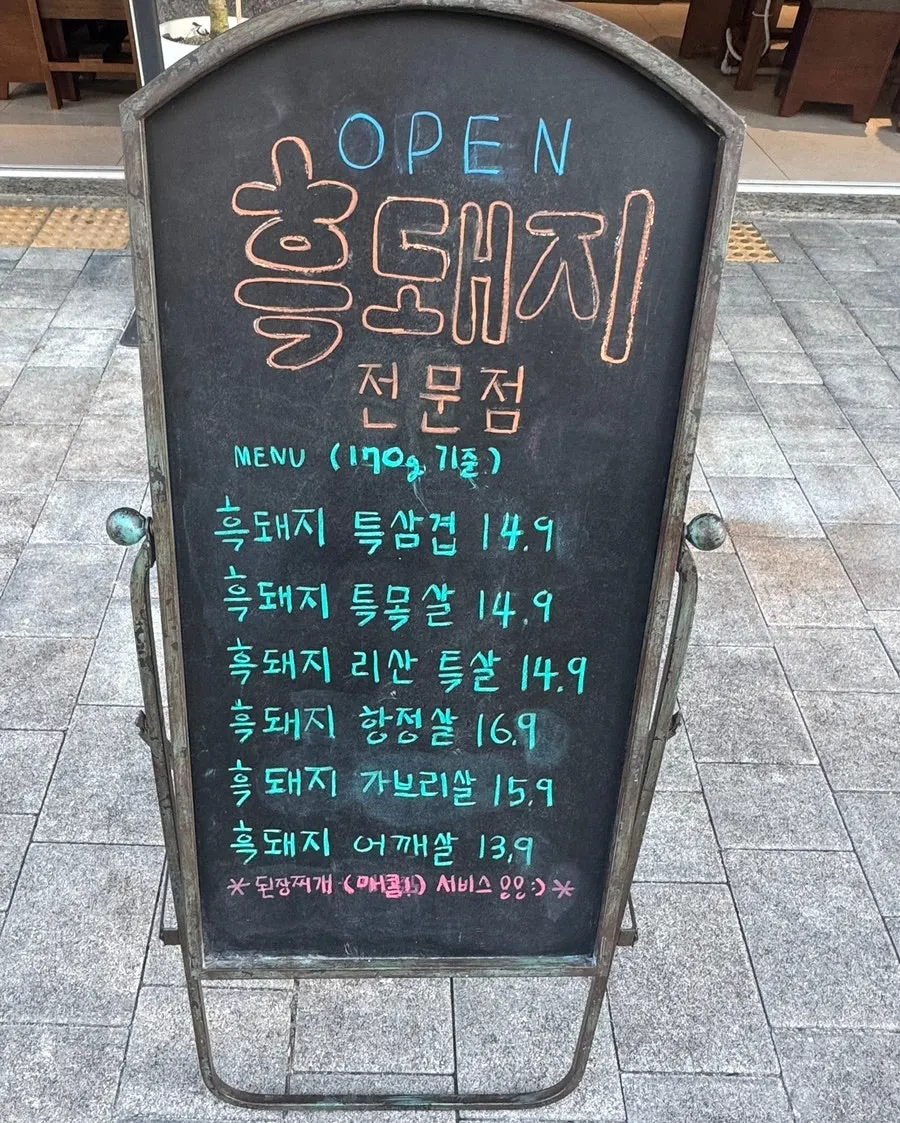 OPEN
흑돼지
전문점
MENU (170g 기준)
흑돼지 특삼겹 14.9
흑돼지 특목살 14.9
흑돼지 리산 특살 14.9
흑돼지 항정살 16.9
흑돼지 가브리살 15.9
흑돼지 어깨살 13.9
* 된장찌개 (매콤) 서비스 :) *